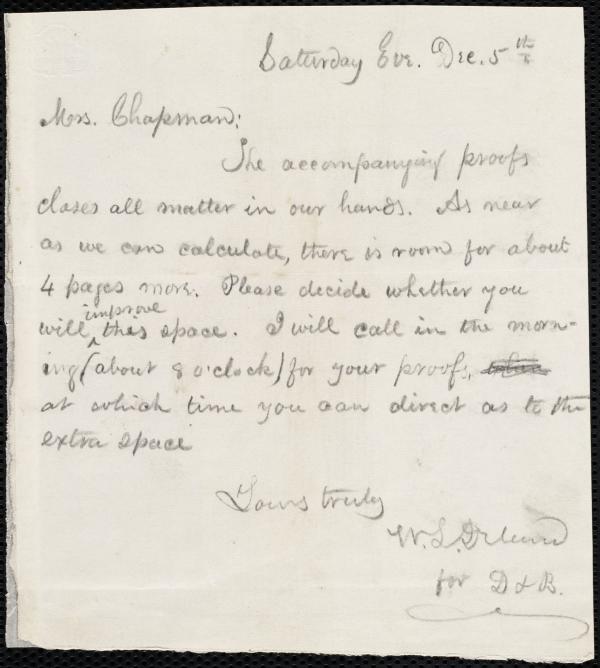 Saturday Eve. Dec. 5th
Mrs. Chapman:
The accompanying proofs
closes all matter in our hands. As near
as we can calculate, there is room for about
4 pages more. Please decide whether you
improve
will ^ this space. I will call in the morn-
ing (about 8 o'clock) for your proofs,
at which time you can direct as to the
extra space
Yours truly
W. L.
for D & B.